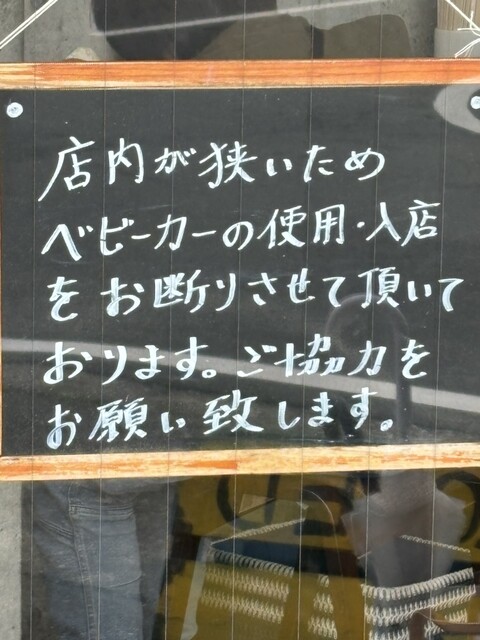 店内が狭いため
ベビーカーの使用・入店
をお断りさせて頂いて
おります。ご協力を
お願い致します。